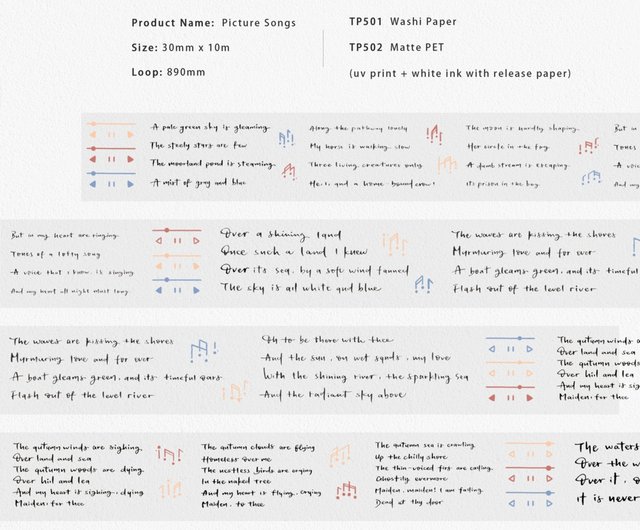 Product Name: Picture Songs
Size: 30mm x 10m
Loop: 890mm
TP501 Washi Paper
TP502 Matte PET
(uv print + white ink with release paper)
A pale green sky is gleaming
The steely stars are few
The moorland pond is steaming
A mist of gray and blue
Along the pathway lonely
My horse is walking slow
Three living creatures only
He, I, and a home-bound crow!
The moon is hardly shaping
Her circle in the fog
A dumb stream is escaping
Its prison in the bog
But in
Tones
A voice
And my
But in my heart are ringing
Tones of a lofty song
A voice that I know is singing
And my heart all night must long
Over a shining land
Once such a land I knew
Over its sea, by a soft wind fanned
The sky is all white and blue
The waves are kissing the shores
Murmuring love and for ever
A boat gleams green, and its timeful
Flash out of the level river
The waves are kissing the shores
Murmuring love and for ever
A boat gleams green, and its timeful oars
Flash out of the level river
Oh to be there with thee
And the sun, on wet sands, my love
With the shining river, the sparkling sea
And the radiant sky above
The autumn winds a
Over land and sea
The autumn woods a
Over hill and lea
And my heart is sig
Maiden, for thee
The autumn winds are sighing,
Over land and sea
The autumn woods are dying,
Over hill and lea
And my heart is sighing, dying
Maiden, for thee
The autumn clouds are flying
Homeless over me
The nestless birds are crying
In the naked tree
And my heart is flying, crying
Maiden, to thee
The autumn sea is crawling
Up the chilly shore
The thin-voiced firs are calling
Ghostily evermore
Maiden, maiden! I am falling
Dead at thy door
The waters
Over the w
Over it,
It is never